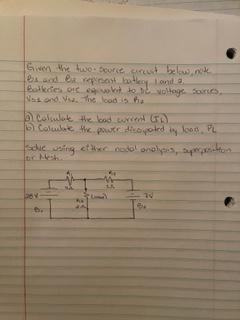 Given the two-source circuit below, note
B11 and B12 represent battery 1 and 2.
Batteries are equivalent to DC voltage sources,
Vs1 and Vs2. The load is RL
a) Calculate the load current (IL)
b) Calculate the power dissipated by load, PL
Solve using either nodal analysis, superposition
or Mesh.
28V
(load)
7V